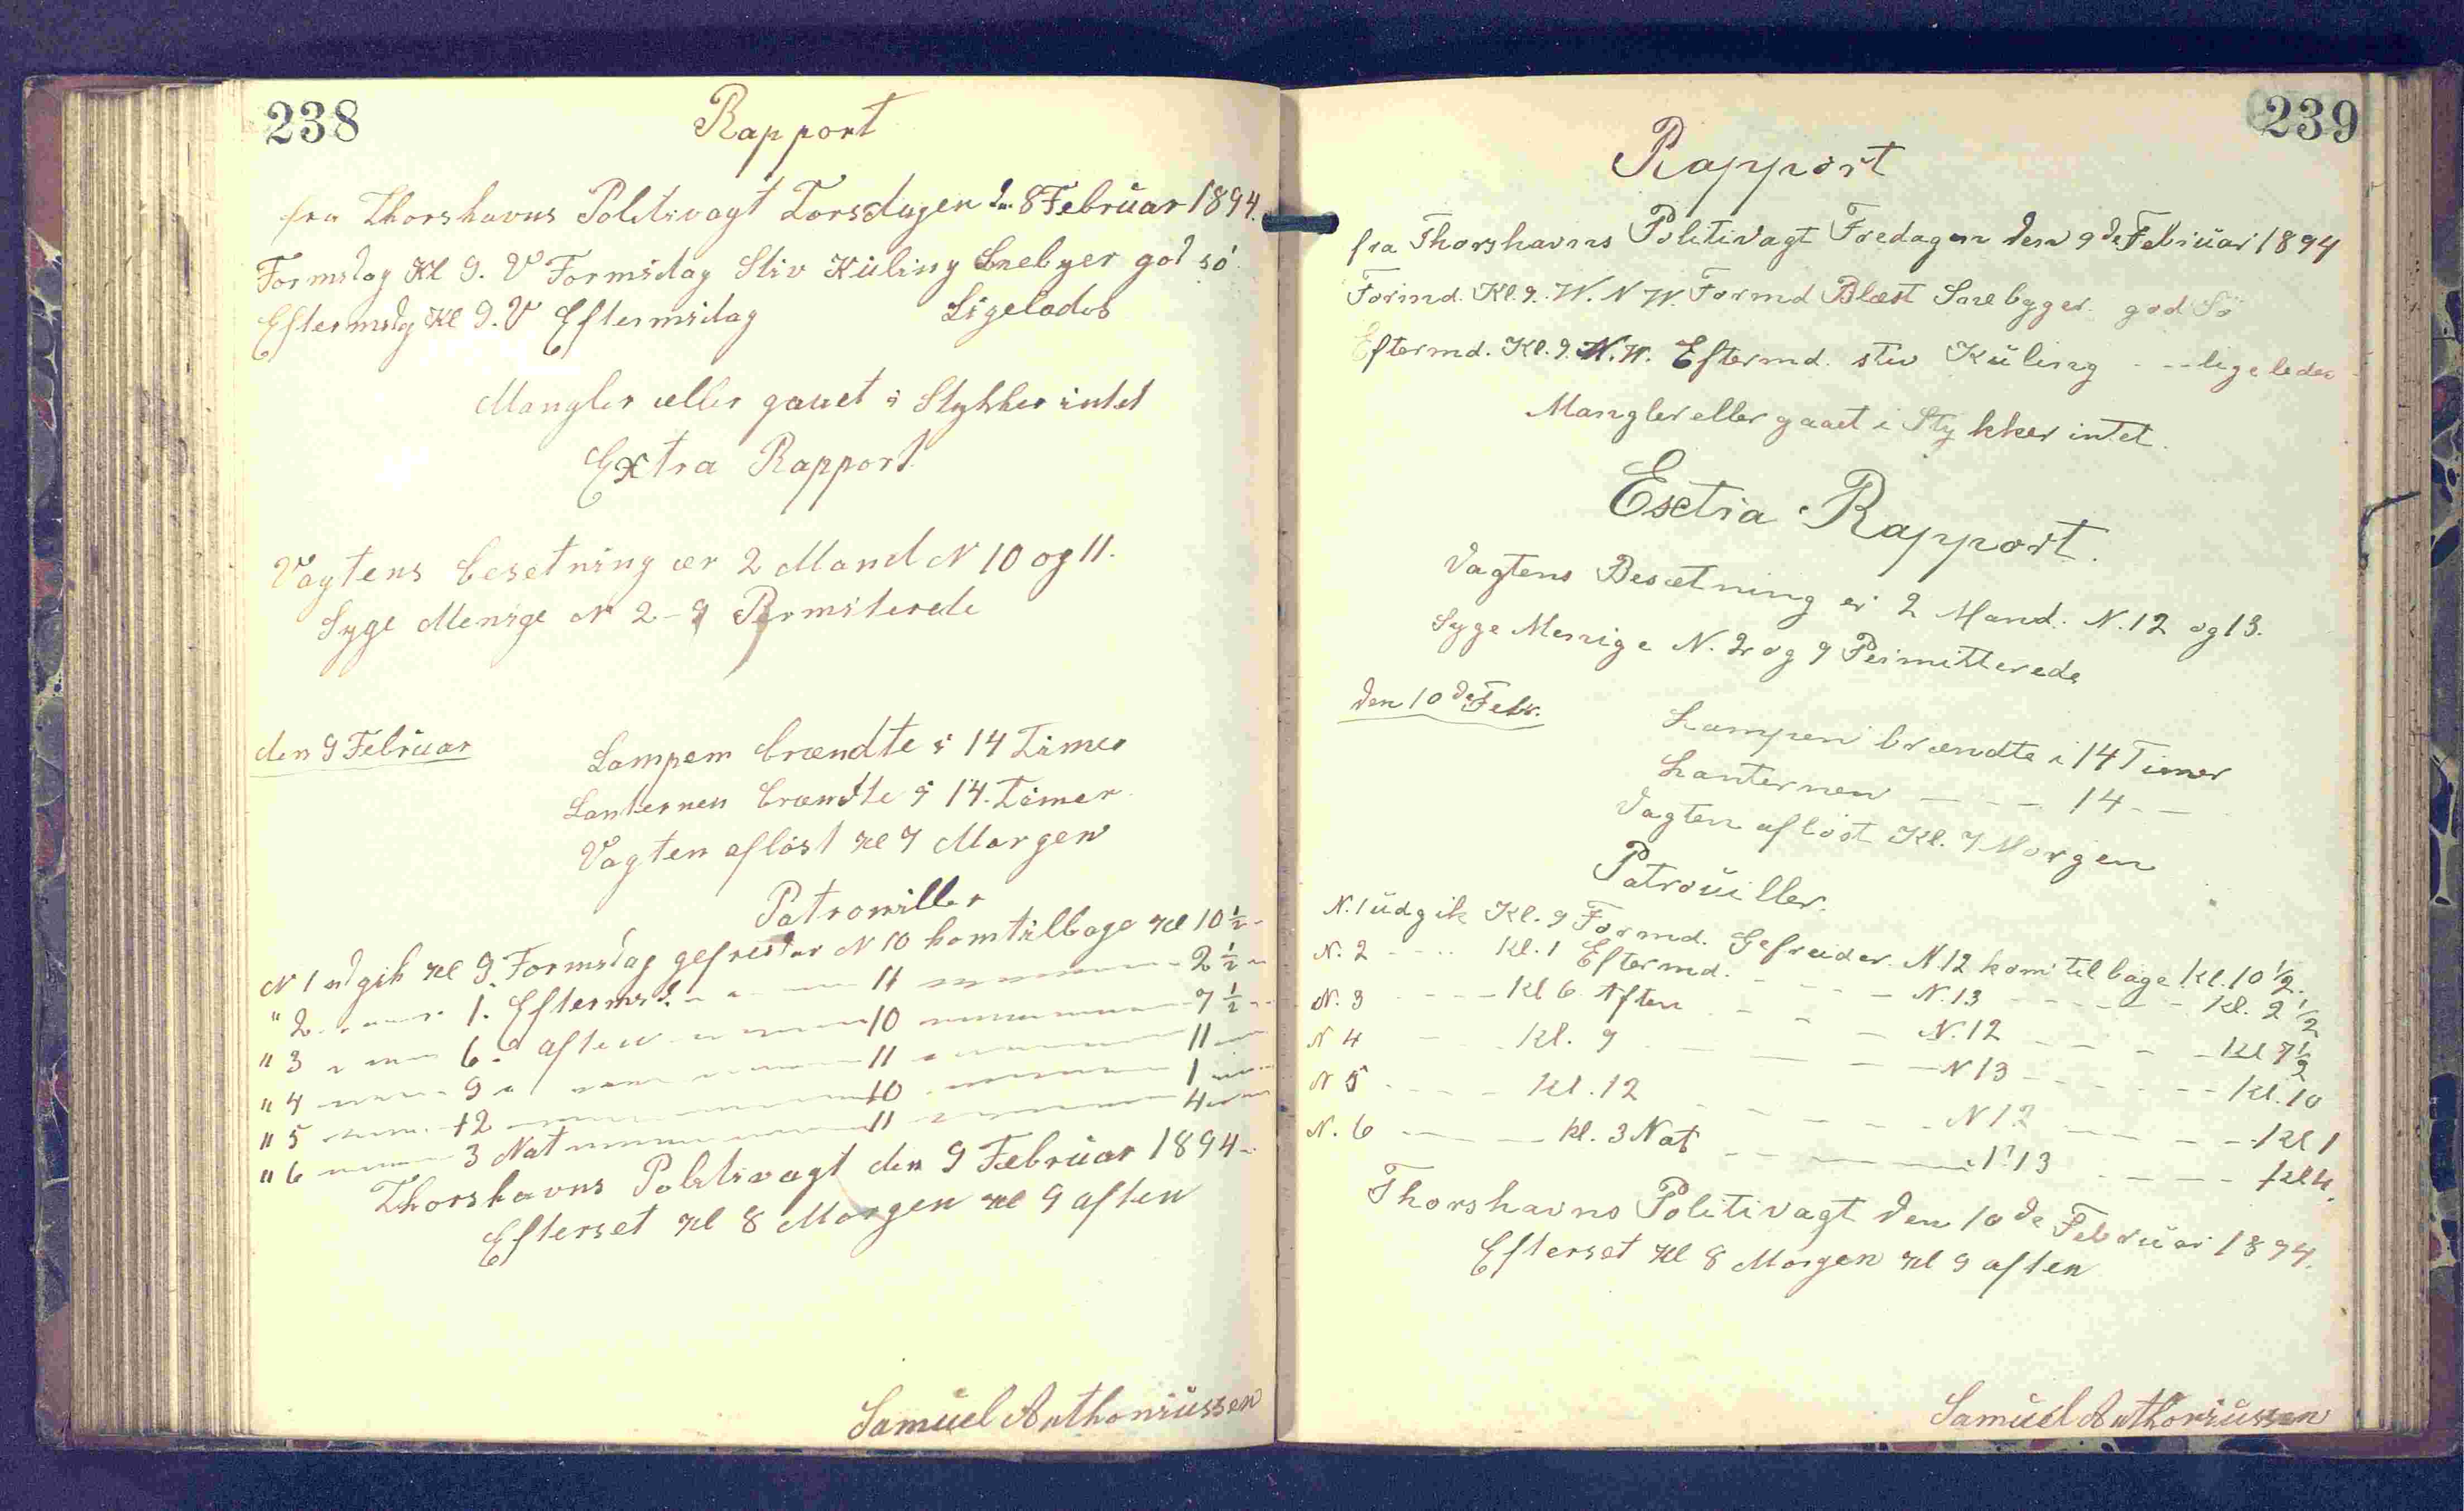 238
Rapport
fra Thorshavns Politivagt Torsdagen den 8 Februar 1894.
Formidag Kl 9. V Formidag Stiv Kuling Snebyer god sö
Eftermidg Kl 9. V Eftermidag Ligelades
Mangler eller gauet i Stykker intet
Extra Rapport
Vagtens besetning er 2 Mand N 10 og 11.
Syge Menige N 2-9 Permiterede
den 9 Februar
Lampem brændte i 14 Timer
Lanternen brændte i 14. Timer
Vagten aflöst Kl 7 Morgen
Patrouiller
N 1 udgik Kl 9. Formidag gefreider N 10 kom tilbage Kl 10 1/2
" 2 1. Eftermid. 11 2 1/2
" 3 6. aften 10 7 1/2
" 4 9 11 11
" 5 12 10 1
" 6 3 Nat 11 4
Thorshavns Politivagt den 9 Februar 1894
Efterset Kl 8 Morgen Kl 9 aften
Samuel Anthoniussen
239
Rapport
fra Thorshavns Politivagt Fredagen den 9de Februar 1894
Formd. Kl. 9. W. N W. Formd Blæst Snebygger. god Sö
Eftermd. Kl. 9. N. W. Eftermd. stiv Kuling - - - ligeledes
Mangler eller gaaet i Stykker intet.
Extra Rapport.
Vagtens Besætning er 2 Mand. N. 12 og 13.
Syge Menige N. 2 og 9 Permitterede
den 10de Febr.
Lampen brændte i 14 Timer
Lanternen - - - 14 - -
Vagten aflöst Kl. 7 Morgen
Patrouiller.
N. 1 udgik Kl. 9 Formd. Gefreider. N 12 kom tilbage Kl. 10 1/2.
N. 2 - - - - Kl. 1 Eftermd. - - - - N. 13 - - - - Kl. 2 1/2
N. 3 - - - - Kl 6 Aften - - - N. 12 - - - - Kl 7 1/2
N 4 - - - Kl. 9 - - - - N 13 - - - - Kl. 10
N 5 - - - - Kl. 12 - - - - N 12 - - - - Kl 1
N. 6 - - - Kl. 3 Nat - - - - 13 - - - - Kl 4.
Thorshavns Politivagt den 10de Februar 1894.
Efterset Kl 8 Morgen Kl 9 aften
Samuel Anthoniussen